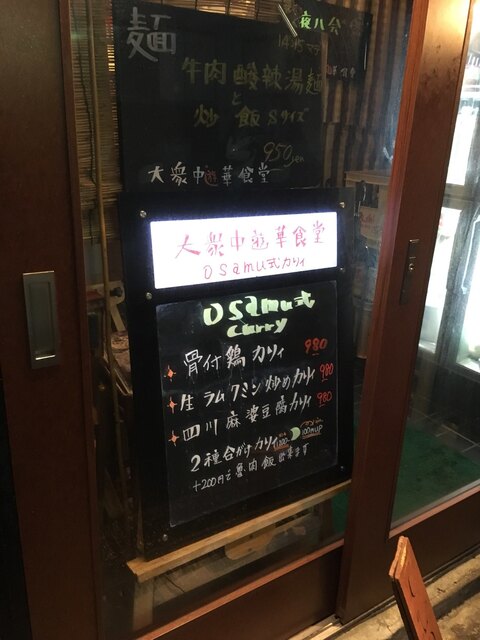 麺
夜八会
牛肉酸辣湯麺
と
炒飯Sサイズ
950yen
大衆中遊華食堂
大衆中遊華食堂
osamu式カリィ
osamu式
curry
骨付鶏カリィ 980
生ラムクミン炒めカリィ 980
四川麻婆豆腐カリィ 980
2種合がけカリィ 1100
100円up
+200円で魯肉飯出来ます